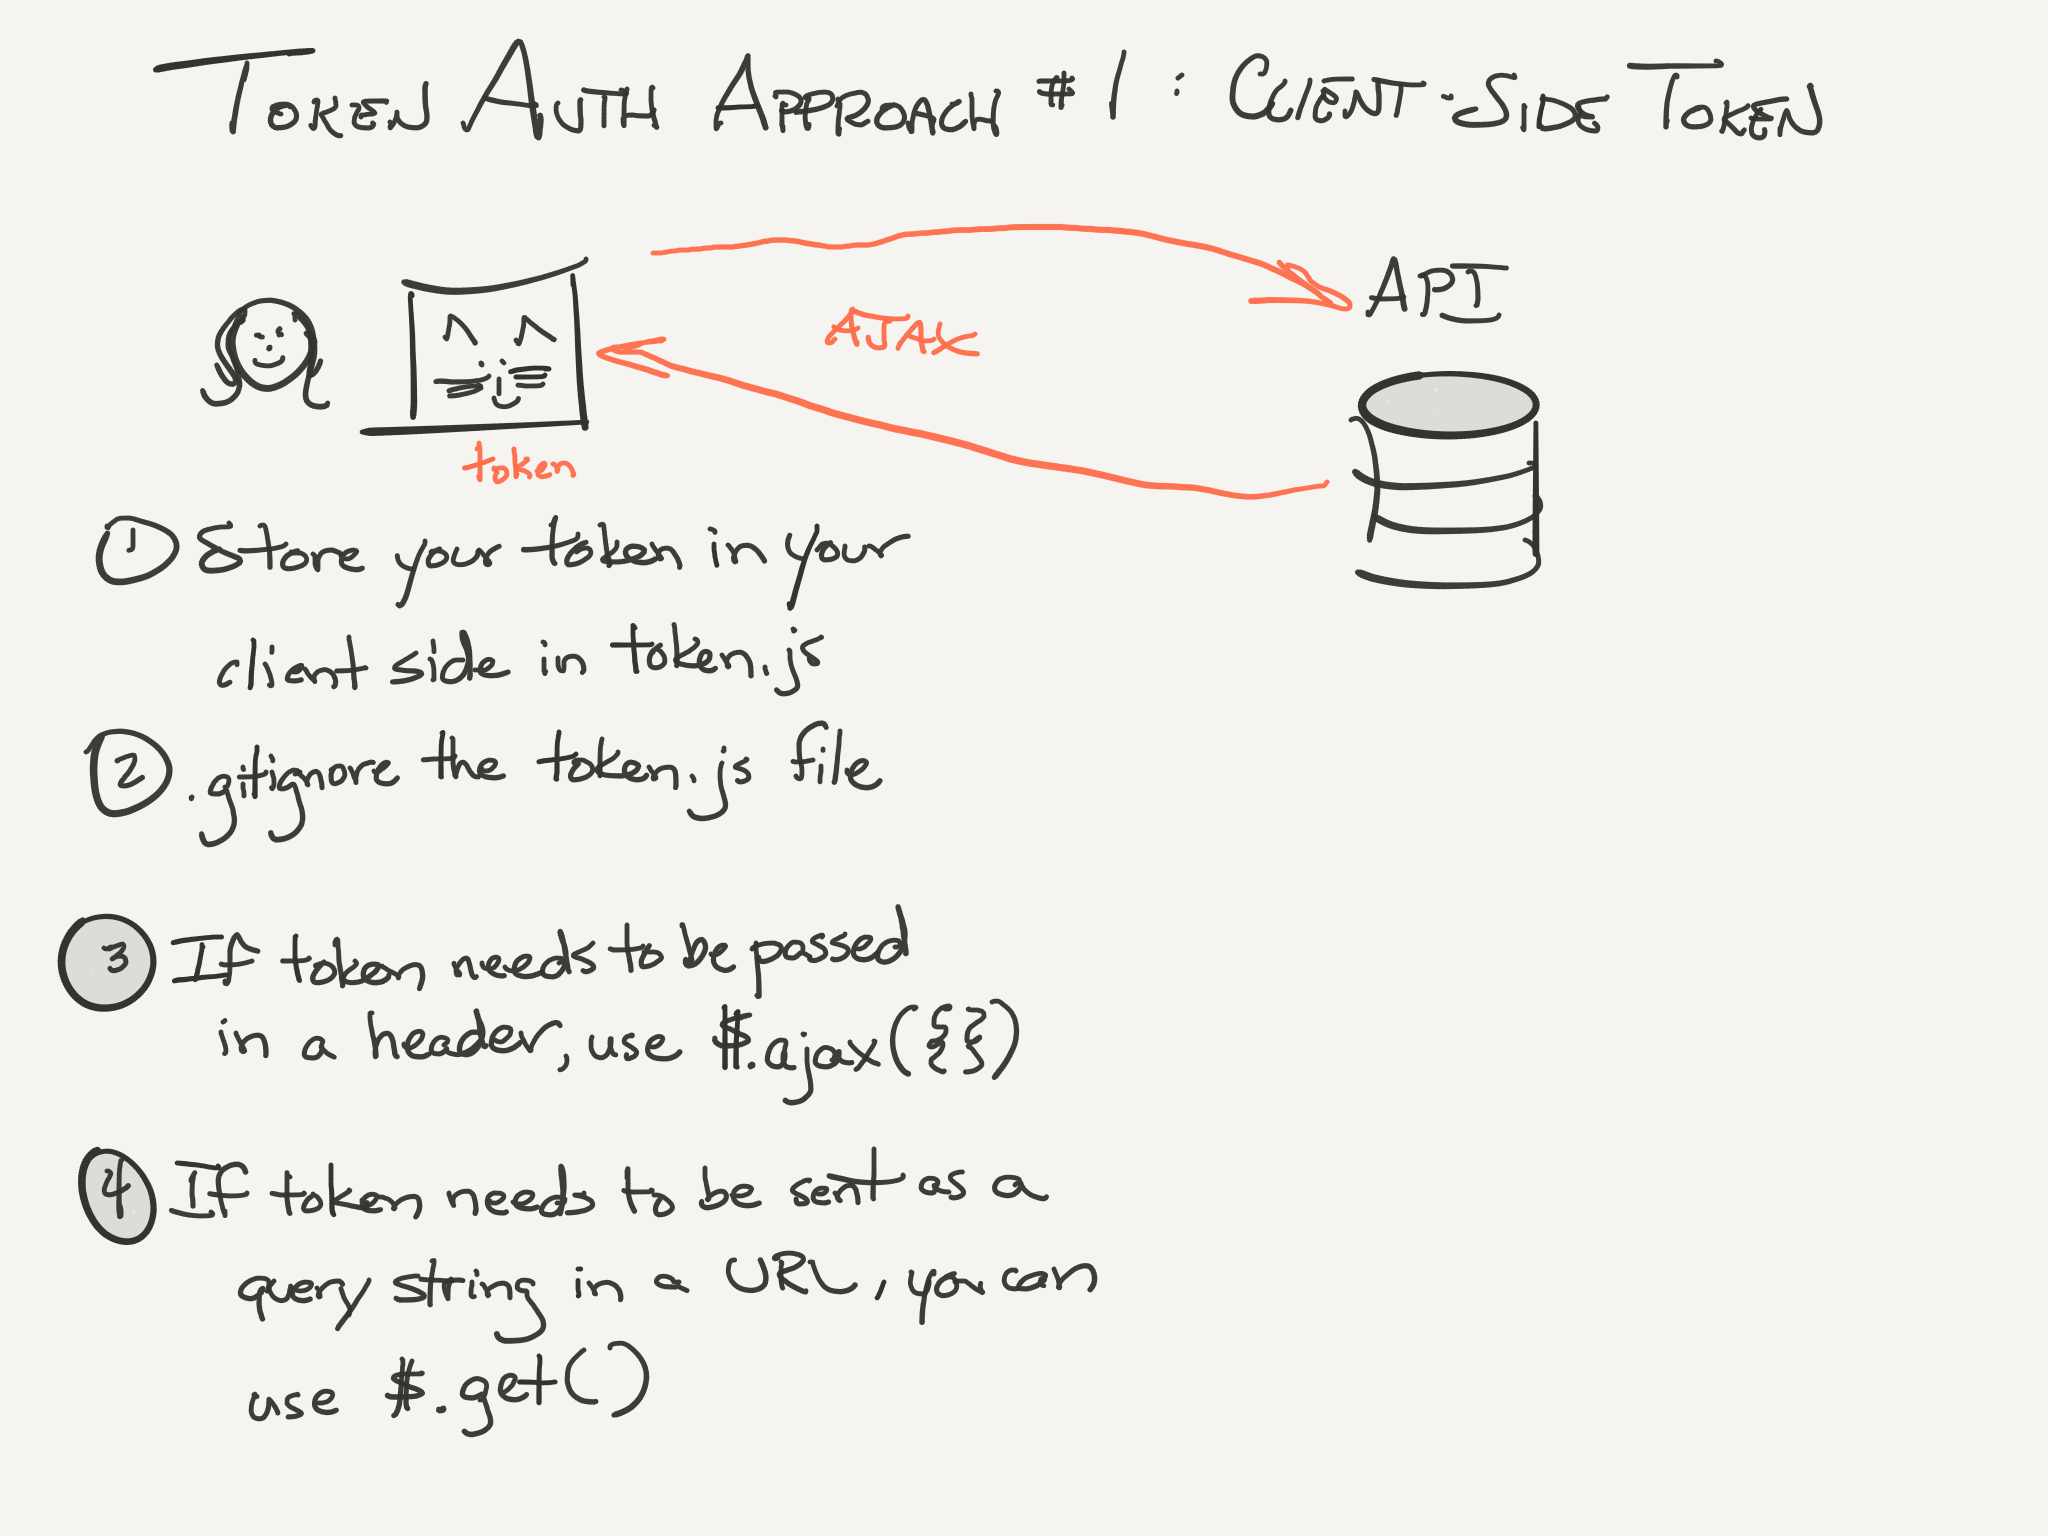 TOKEN AUTH APPROACH #1: CLIENT-SIDE TOKEN
API
AJAX
token
1 Store your token in your
client side in token.js
2 .gitignore the token.js file
3 If token needs to be passed
in a header, use $.ajax({})
4 If token needs to be sent as a
query string in a URL, you can
use $.get()